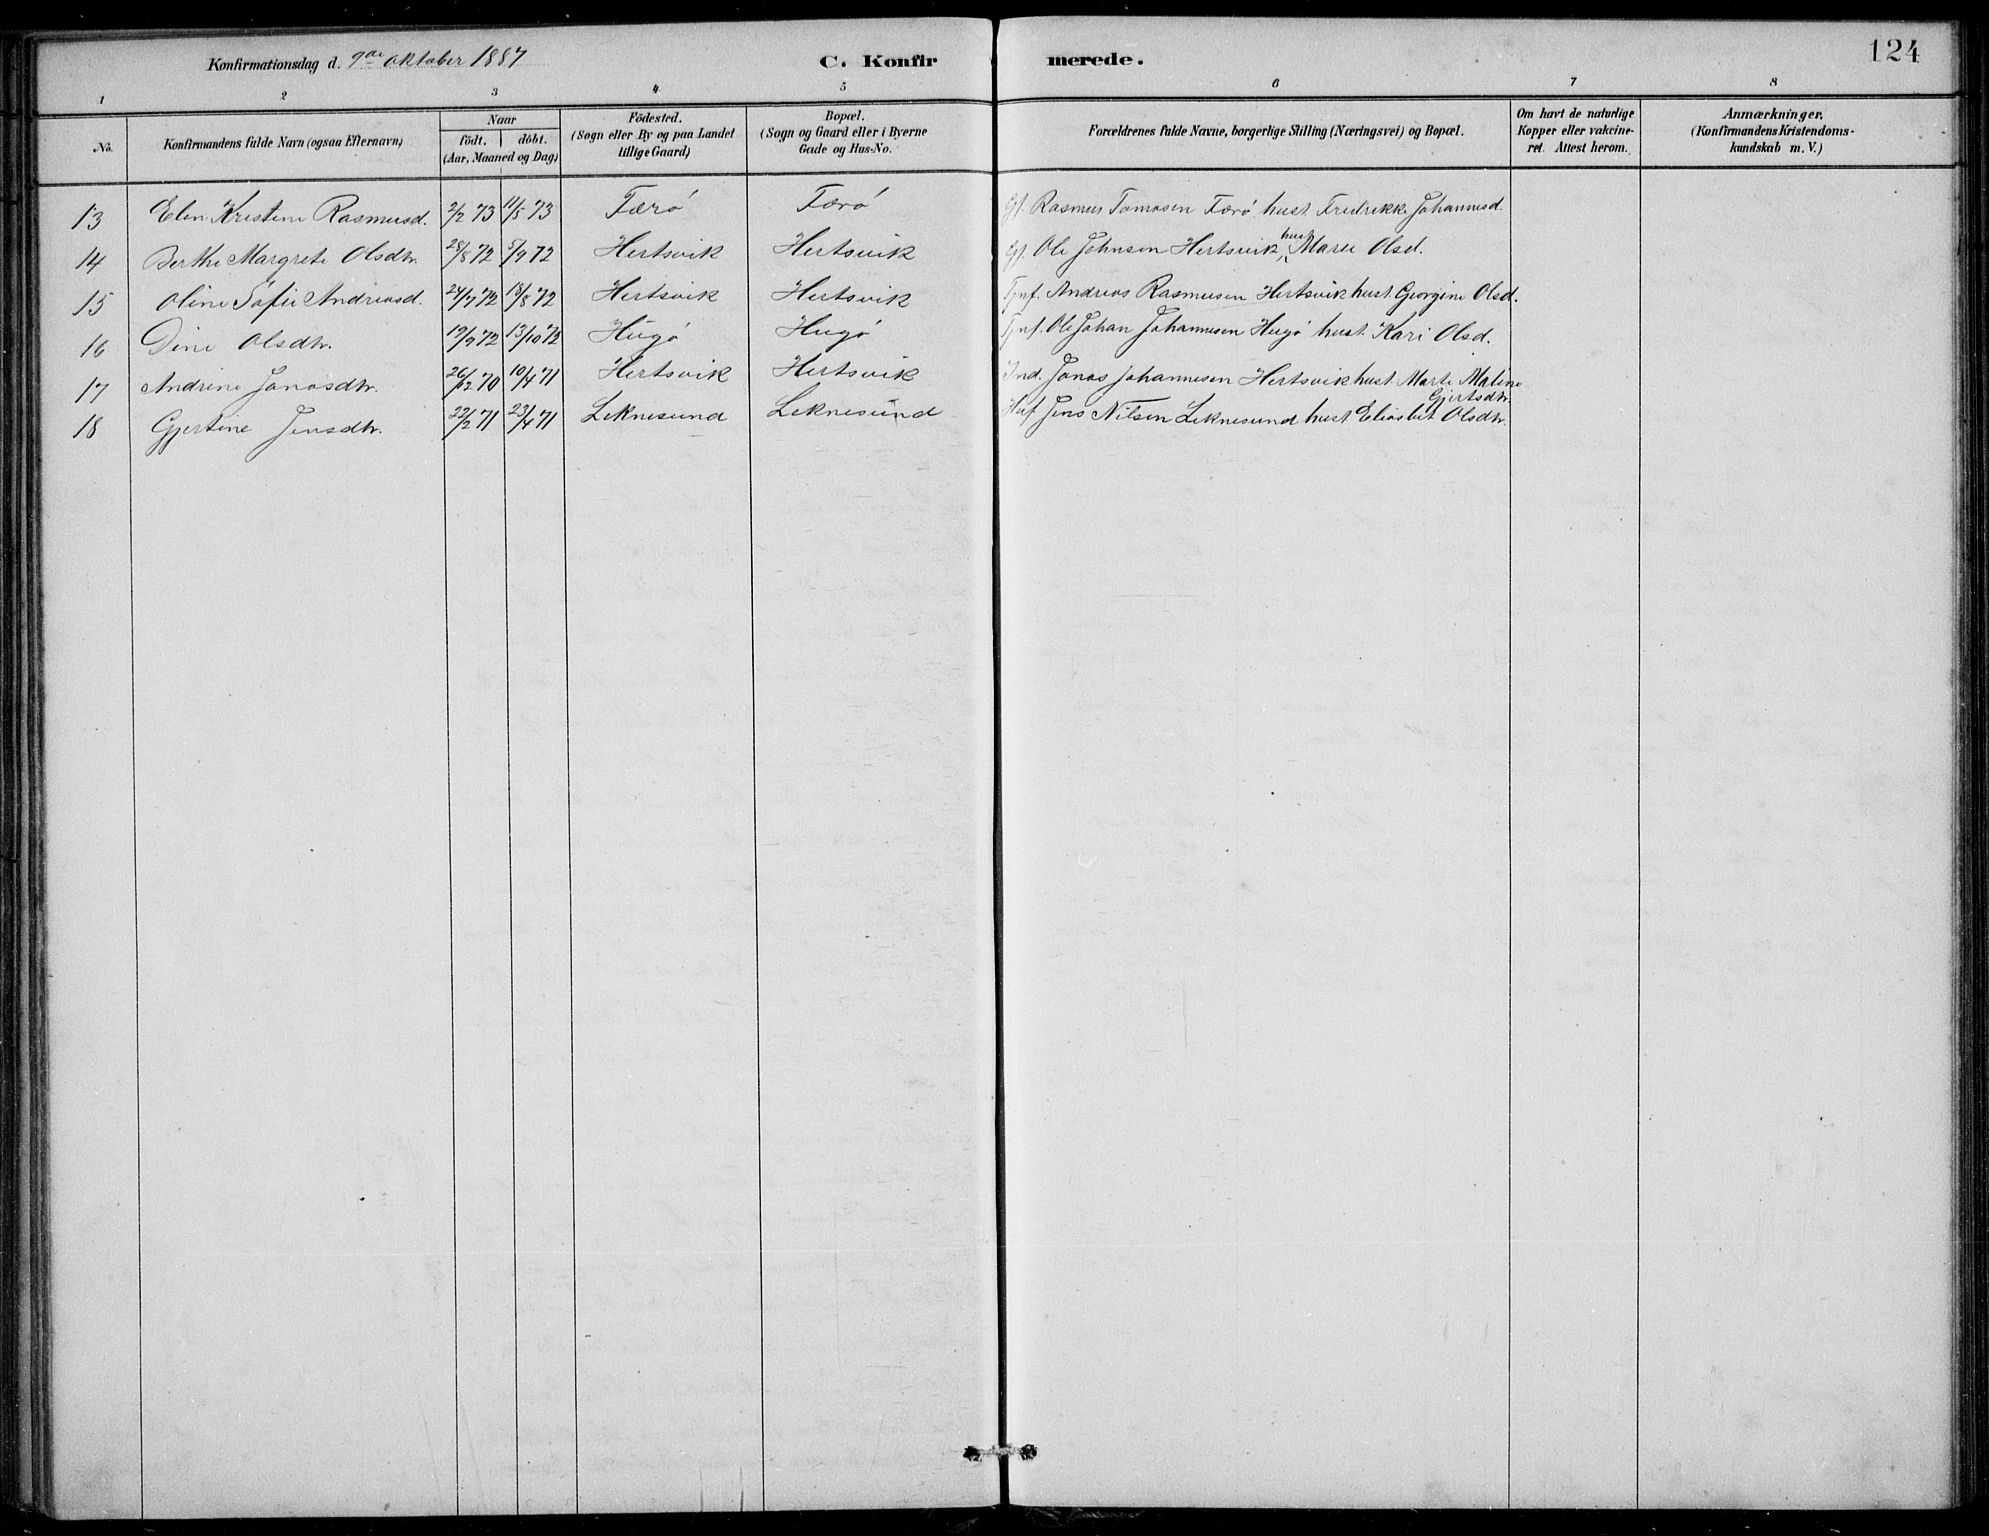 Konfirmationsdag d. 9de oktober 1887 C. Konfirmerede. 124
1 2 3 4 5 6 7 8
No. Konfirmandens fulde Navn (ogsaa Efternavn) Naar födt. döbt. (Aar, Maaned og Dag) Födested. (Sogn eller By og paa Landet tillige Gaard) Bopæl. (Sogn og Gaard eller i Byerne Gade og Hus-No. Forældrenes fulde Navne, borgerlige Stilling (Næringsvei) og Bopæl. Om havt de naturlige Kopper eller vakcineret. Attest herom. Anmærkninger, (Konfirmandens Kristendomskundskab m. V.)
13 Elen Kristine Rasmusd. 2/2 73 11/5 73 Færö Færö Gf. Rasmus Tomasen Færö hust Fredrikke Johannesd.
14 Berthe Margrete Olsdtr. 28/8 72 5/9 72 Hertsvik Hertsvik Gf. Ole Johnsen Hertsvik hust Maren Olsd.
15 Oline Sofie Andreasd. 24/7 72 18/8 72 Hertsvik Hertsvik Tjnf. Andreas Rasmusen Hertsvik hust Georgine Olsd.
16 Dine Olsdtr. 19/9 72 13/10 72 Hugö Hugö Tjnf. Ole Johan Johannesen Hugö hust. Kari Olsd.
17 Andrine Jonasdtr. 26/12 70 10/4 71 Hertsvik Hertsvik Ind. Jonas Johannesen Hertsvik hust Marte Malene Gjertsdtr.
18 Gjertine Jensdtr. 22/2 71 23/4 71 Leknesund Leknesund Huf Jens Nilsen Leknesund hust Eliasbet Olsdtr.